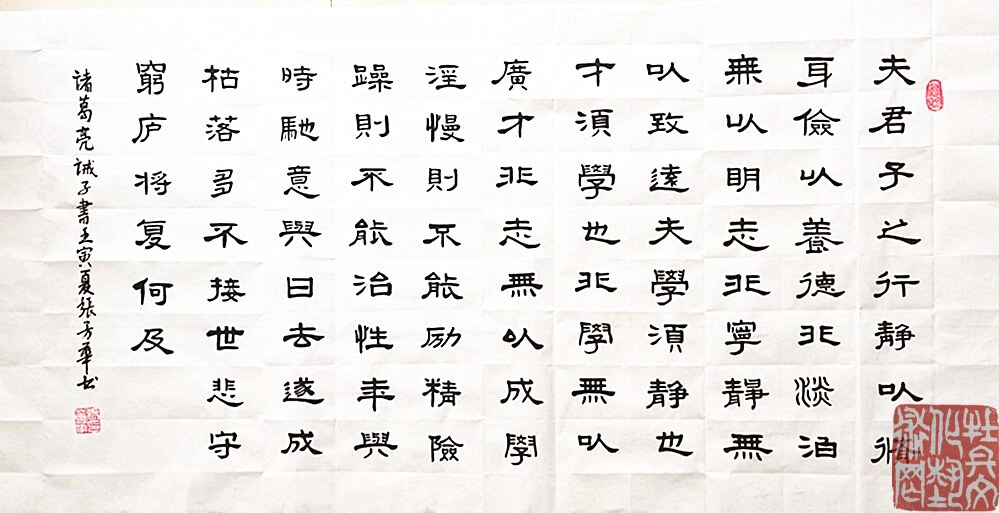 夫君子之行静以
身儉以養德非淡泊
無以明志非寧静無
以致遠夫學須静也
才須學也非學無以
廣才非志無以成學
淫慢則不能励精險
躁則不能治性年與
時馳意與日去遂成
枯落多不接世悲守
窮庐将复何及
诸葛亮诫子書壬寅夏張芳華书